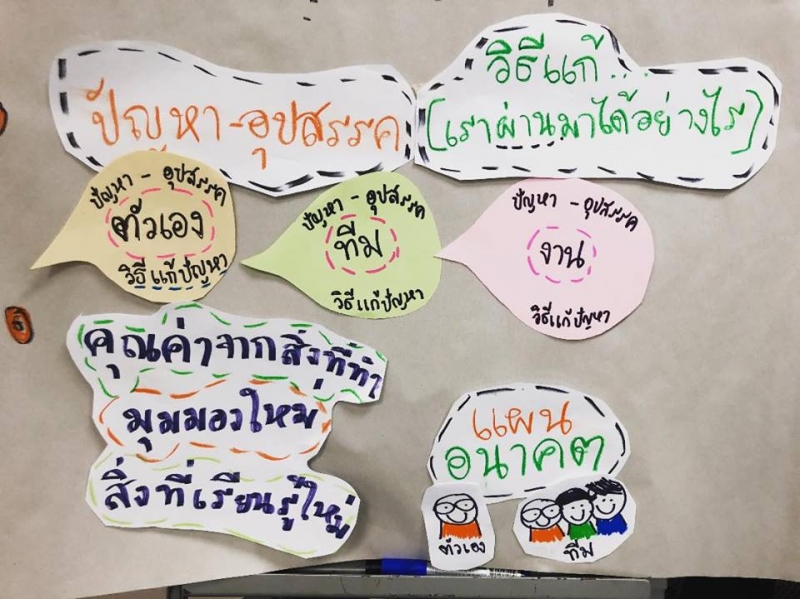 ปัญหา-อุปสรรค
วิธีแก้...
(เราผ่านมาได้อย่างไร)
ปัญหา - อุปสรรค
ตัวเอง
วิธีแก้ปัญหา
ปัญหา - อุปสรรค
ทีม
วิธีแก้ปัญหา
ปัญหา - อุปสรรค
งาน
วิธีแก้ปัญหา
คุณค่าจากสิ่งที่ทำ
มุมมองใหม่
สิ่งที่เรียนรู้ใหม่
แผน
อนาคต
ตัวเอง
ทีม